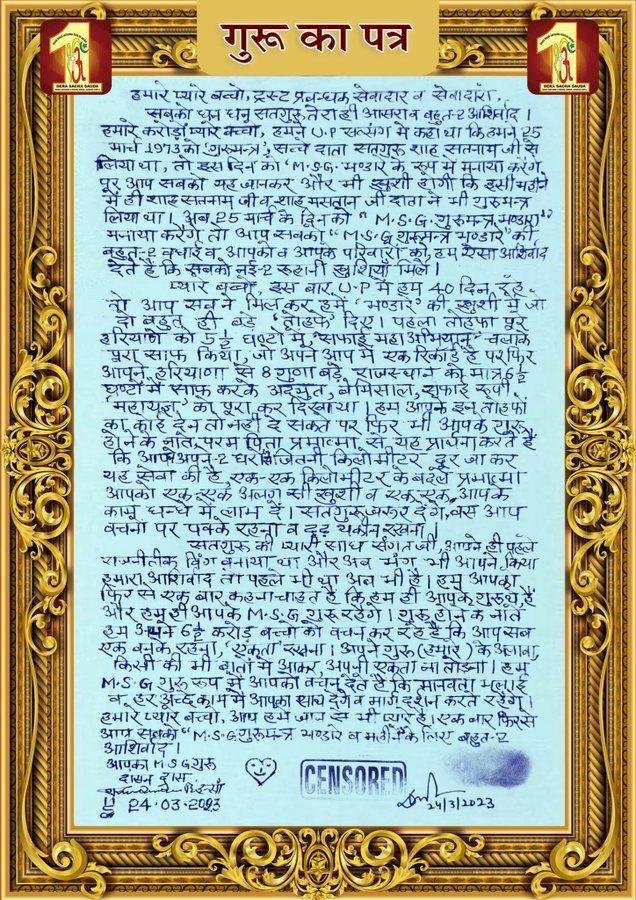 गुरू का पत्र
DERA SACHA SAUDA
DERA SACHA SAUDA
हमारे प्यारे बच्चो, ट्रस्ट प्रबन्धक सेवादार व सेवादारों,
सबको धन धन सतगुरु तेरा ही आसरा व बहुत-2 आशिर्वाद।
हमारे करोड़ों प्यारे बच्चो, हमने U.P सत्संग में कहा था कि हमने 25
मार्च 1973 को 'गुरुमन्त्र', सच्चे दाता सतगुरु शाह सतनाम जी से
लिया था, तो इस दिन को 'M.S.G. भण्डारे' के रूप में मनाया करेंगे
पर आप सबको यह जानकर और भी खुशी होगी कि इसी महीने
में ही शाह सतनाम जी व शाह मस्तान जी दाता ने भी गुरुमन्त्र
लिया था। अब 25 मार्च के दिन को "M.S.G. गुरुमन्त्र भण्डारा"
मनाया करेंगे तो आप सबको "M.S.G गुरुमन्त्र भण्डारे" की
बहुत-2 बधाई व आपको व आपके परिवारों को, हम ऐसा आशिर्वाद
देते है कि सबको नई-2 रूहानी खुशियां मिलें।
प्यारे बच्चो, इस बार U.P में हम 40 दिन रहे
तो आप सब ने मिलकर हमें 'भण्डारे' की खुशी में जो
दो बहुत ही बड़े 'तोहफे' दिए। पहला तोहफा पूरे
हरियाणा को 5½ घण्टों में "सफाई महा अभियान" चलाके
पूरा साफ किया, जो अपने आप में एक रिकार्ड है पर फिर
आपने हरियाणा से 8 गुणा बड़े, राजस्थान को मात्र 6½
घण्टों में साफ करके अदभुत, बेमिसाल, सफाई रूपी
'महायज्ञ' को पूरा कर दिखाया। हम आपके इन तोहफों
का कोई देन तो नही दे सकते पर फिर भी आपके गुरु
होने के नाते, परम पिता प्रमात्मा से, यह प्रार्थना करते है
कि आप अपने-2 घर से जितनी किलोमीटर दूर जा कर
यह सेवा की है, एक-एक किलोमीटर के बदले प्रमात्मा
आपको एक-एक अलग सी खुशी व एक-एक आपके
काम धन्धे में लाभ दें। सतगुरु जरूर देंगे, बस आप
वचनों पर पक्के रहना व दृढ़ यकीन रखना।
सतगुरु की प्यारी साध संगत जी, आपने ही पहले
राजनीतीक विंग बनाया था और अब भंग भी आपने किया
हमारा आशिर्वाद तो पहले भी था अब भी है। हम आपको
फिर से एक बार कहना चाहते है कि हम ही आपके गुरु थे, है
और हम ही आपके M.S.G गुरु रहेंगे। गुरु होने के नाते
हम अपने 6½ करोड़ बच्चो को वचन कर रहे है कि आप सब
एक बनके रहना, 'एकता' रखना। अपने गुरु (हमारे) के अलावा,
किसी की भी बातों में आकर, अपनी एकता ना तोड़ना। हम
M.S.G गुरु रूप में आपको वचन देते है कि मानवता भलाई
व हर अच्छे काम में आपका साथ देंगे व मार्ग दर्शन करते रहेंगे।
हमारे प्यारे बच्चो, आप हमें जान से भी प्यारे है। एक बार फिर से
आप सबको "M.S.G गुरुमन्त्र भण्डारे व महीने के लिए बहुत-2
आशिर्वाद।
आपका M.S.G गुरु
दासन दास
24.03.2023
CENSORED
24/3/2023